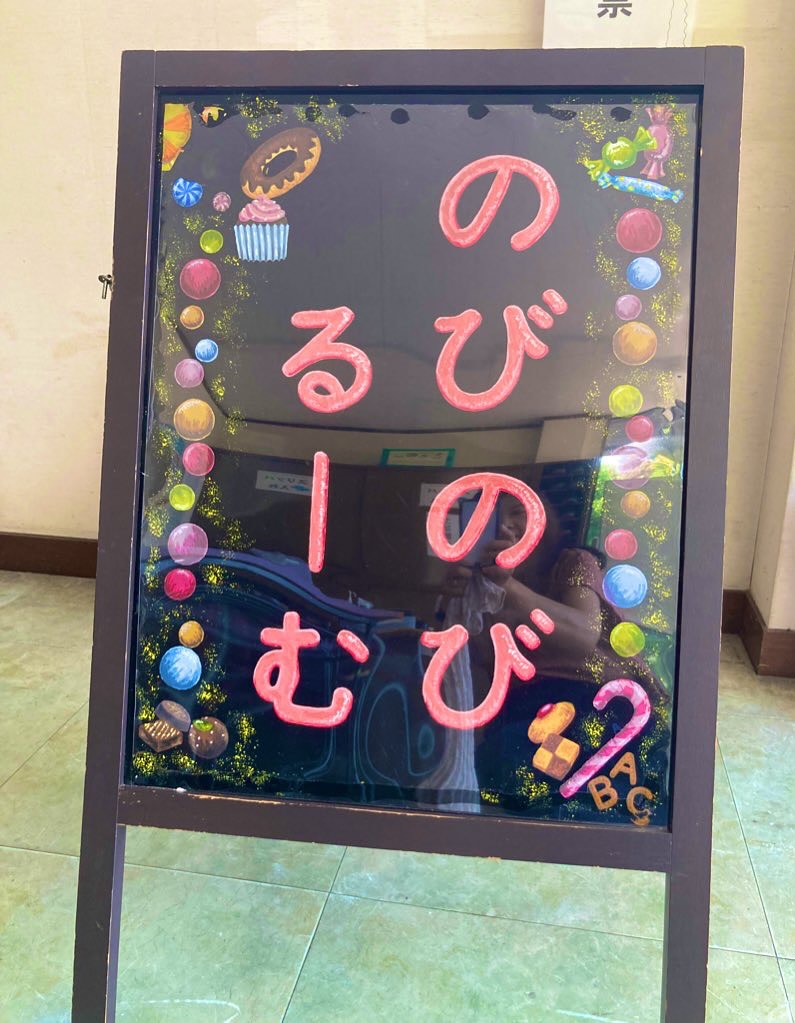 のびのび
るーむ
BAC